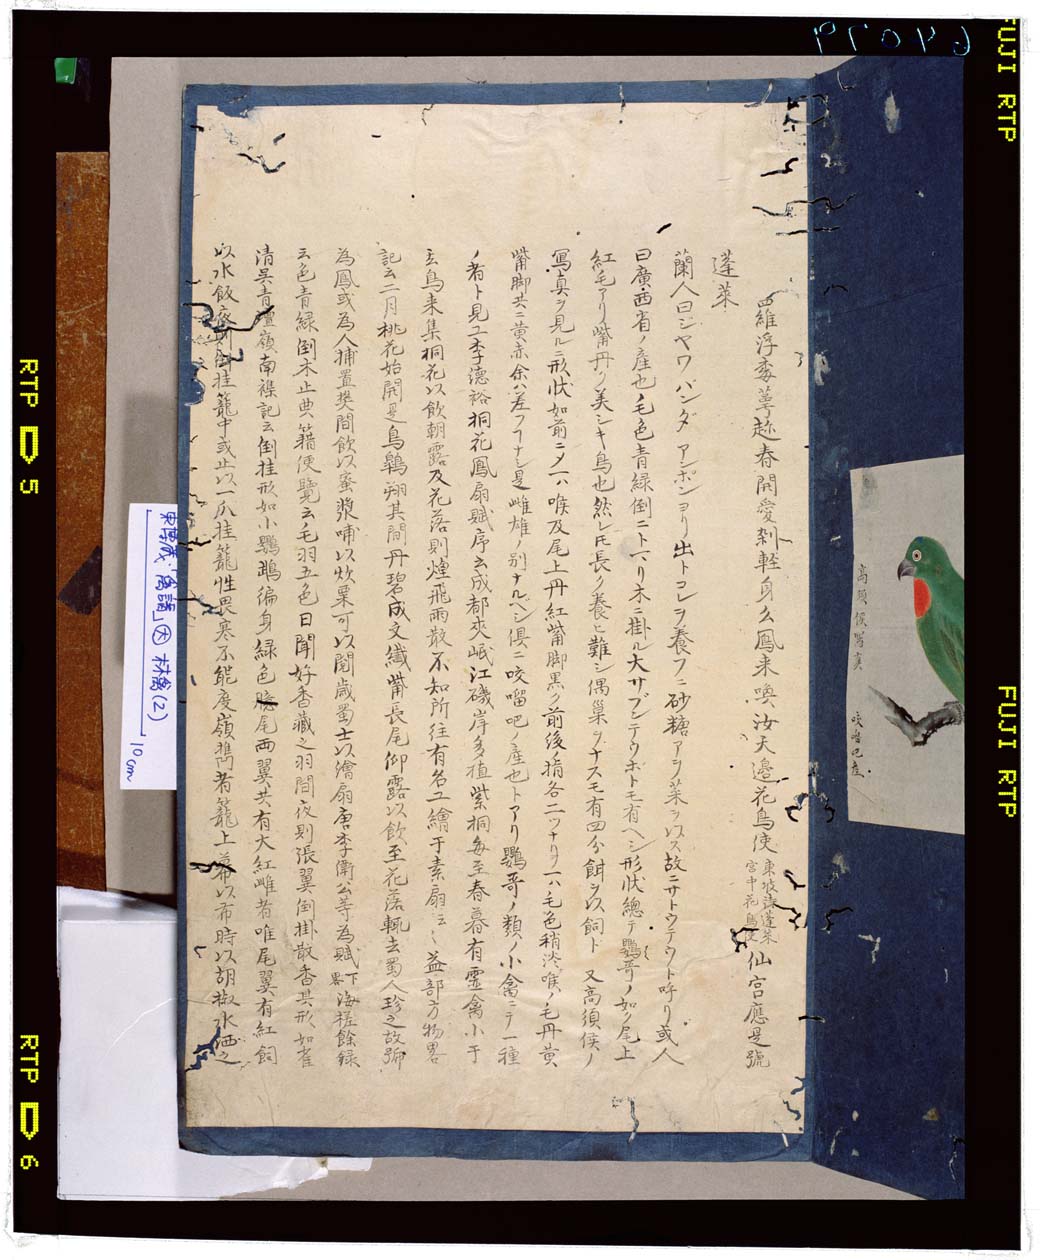 羅浮
春開愛
輕身么鳳来喚汝天邊花鳥使
東坡詩蓬莱
宮中花鳥使
仙宮應是號
蓬莱
蘭人曰シヤワバンダアンボンヨリ出トコレヲ養フニ砂糖
故ニサトウテウト呼リ或人
曰廣西省ノ産也毛色青緑倒ニトマリ木ニ掛ル
形状總テ鸚哥ノ如ク尾上
紅毛アリ觜丹ク美シキ鳥也然レ𪜈長ク養ヒ難シ偶巣ヲナスモ有四分餌ヲ以飼ト又高須侯ノ
寫真ヲ見ルニ形状如前ニメ一ハ喉及尾上丹紅觜脚黒ク前後ノ指各二ツナリ
一ハ毛色稍淡喉ノ毛丹黄
觜脚共ニ黄赤余ハ差フ
是雌雄ノ別ナルベシ俱ニ咬𠺕吧ノ産也トアリ鸚哥ノ類ノ小禽ニテ一種
ノ者ト見エ李德裕桐花鳳扇賦序云成都夾岷江磯岸多植紫桐毎至春暮有靈禽小于
玄鳥来集桐花以飲朝露及花落則煙飛雨散不知所往有名工繪于素扇云〻益部方物畧
記云二月桃花始開是鳥翱翔其間丹碧成文纖觜長尾仰露以飲至花落輒去蜀人珍之故號
為鳳或為人捕置樊間飲以蜜漿哺以炊粟可以閲歳蜀士以繪扇唐李衛公等為賦下畧海槎餘録
云色青緑倒木止典籍便覽云毛羽五色日聞好香藏之羽間夜則張翼倒掛散香其形如雀
清呉青壇嶺南襍記云倒挂形如小鸚鵡徧身緑色
尾両翼共有大紅雌者唯尾翼有紅飼
以水飯
倒挂籠中或止以一爪挂籠性畏寒不能度嶺攜者籠上幕以布時以胡椒水洒之
高須侯寫真
咬𠺕吧産
東博蔵「鳥譜」
林禽(2)
10cm
64079
FUJI RTP
FUJI RTP
RTP D 5
RTP D 6